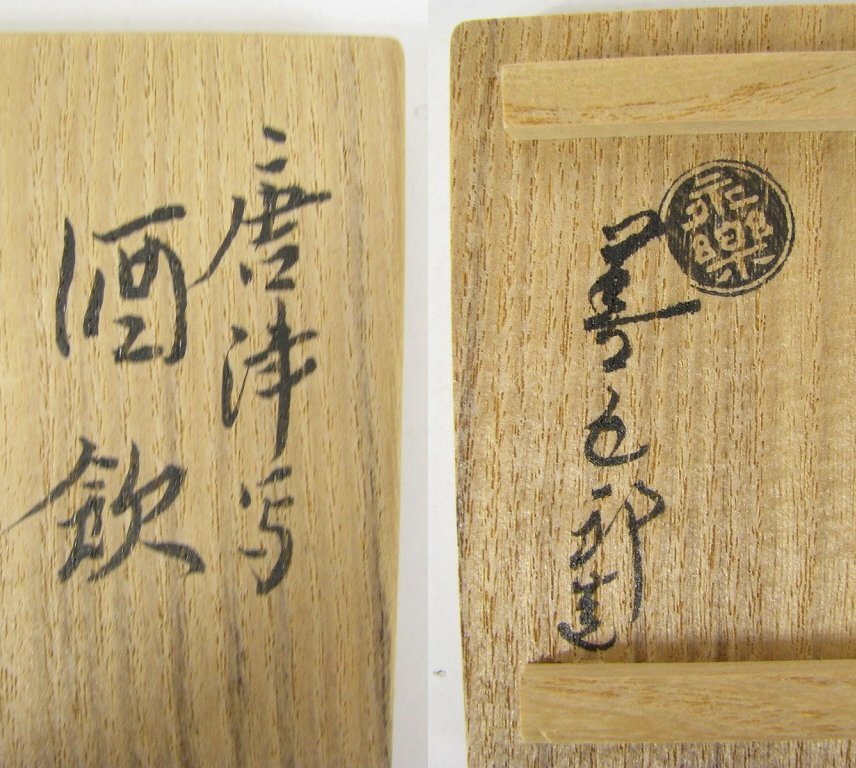 唐津写
酒飲
永樂
善五郎造